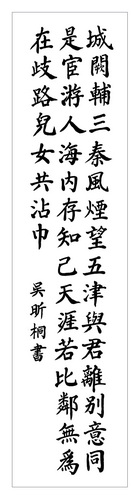 城闕輔三秦風煙望五津與君離別意同
是宦游人海内存知己天涯若比鄰無為
在歧路兒女共沾巾
吳昕桐書